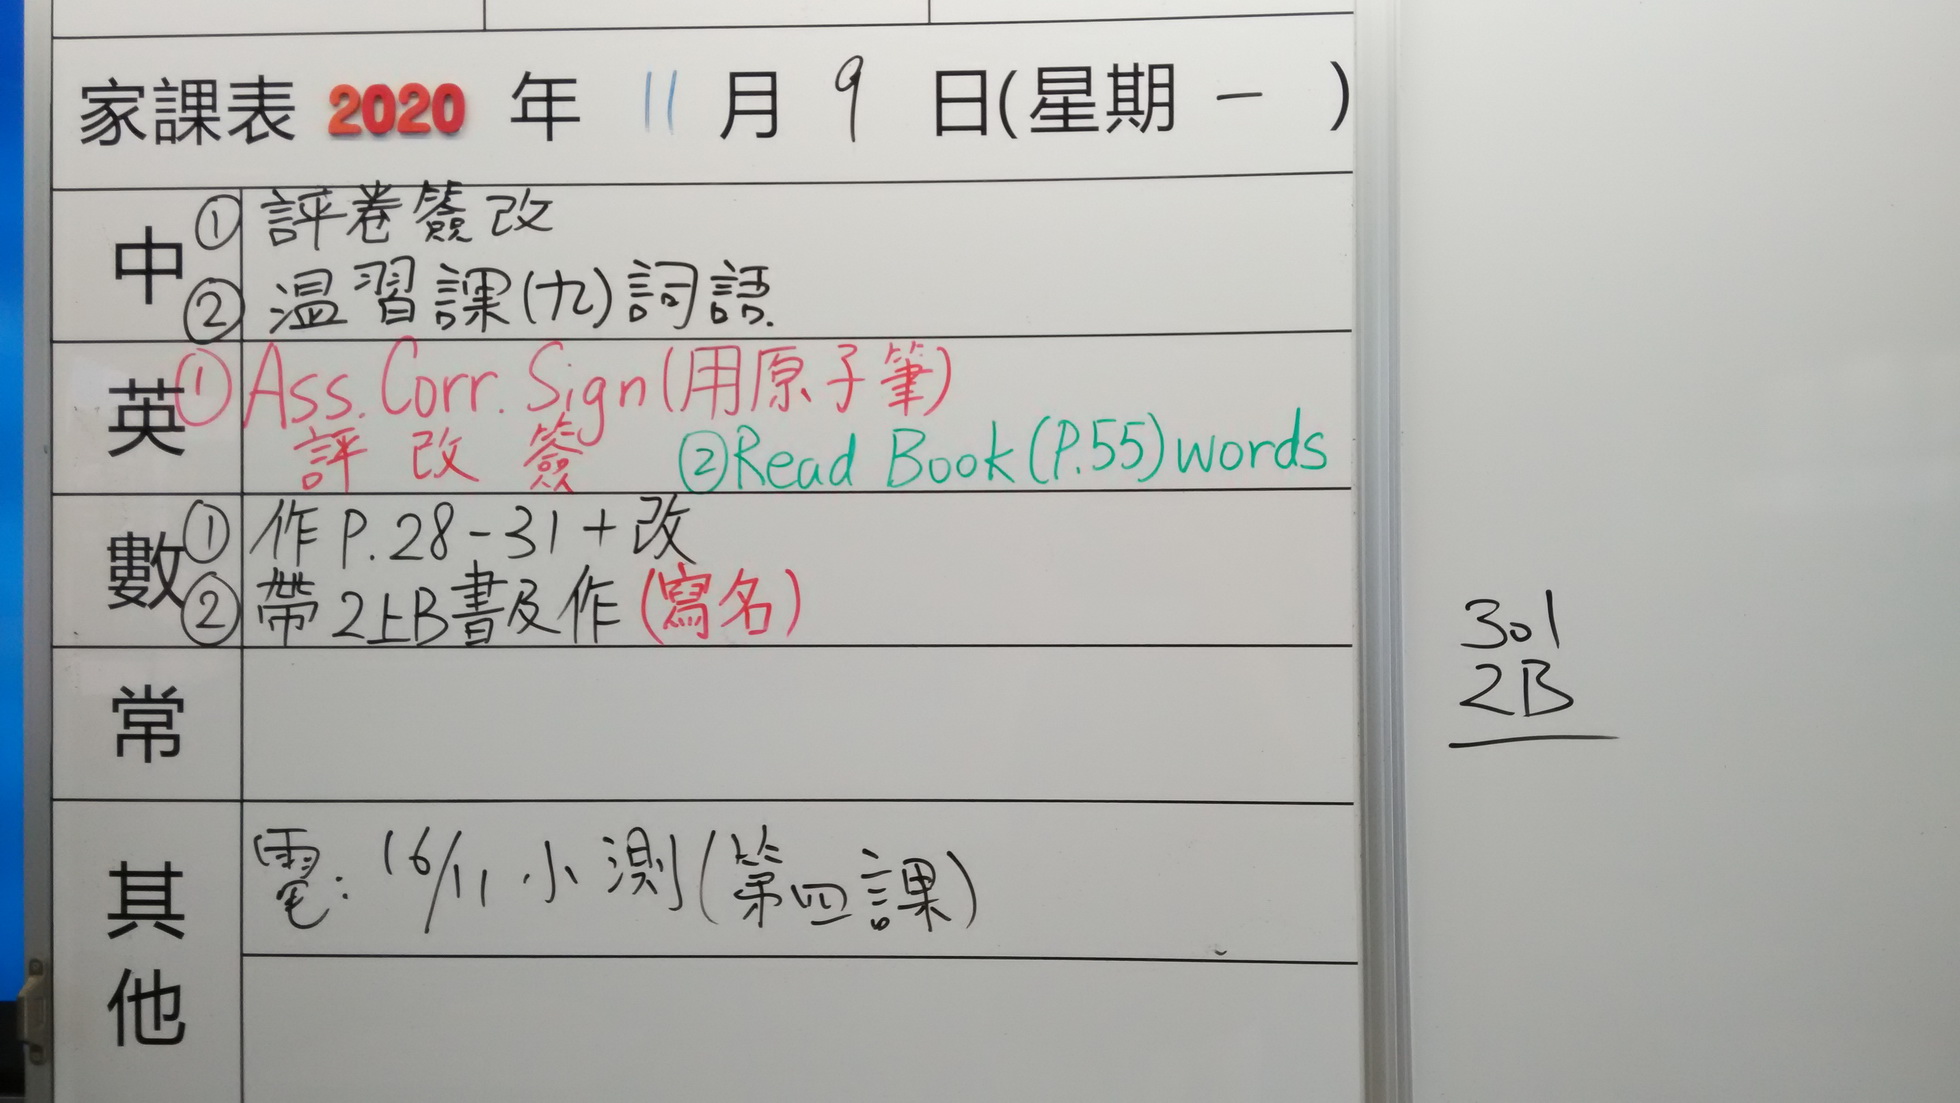 家課表 2020 年 11 月 9 日(星期 一 )
中 ① 評卷簽改
② 温習課(九)詞語
英 ① Ass. Corr. Sign (用原子筆)
評 改 簽 ② Read Book (P.55) words
數 ① 作 P. 28 - 31 + 改
② 帶 2上B書及作 (寫名)
常
其他 電: 16/11 小測 (第四課)
301
2B